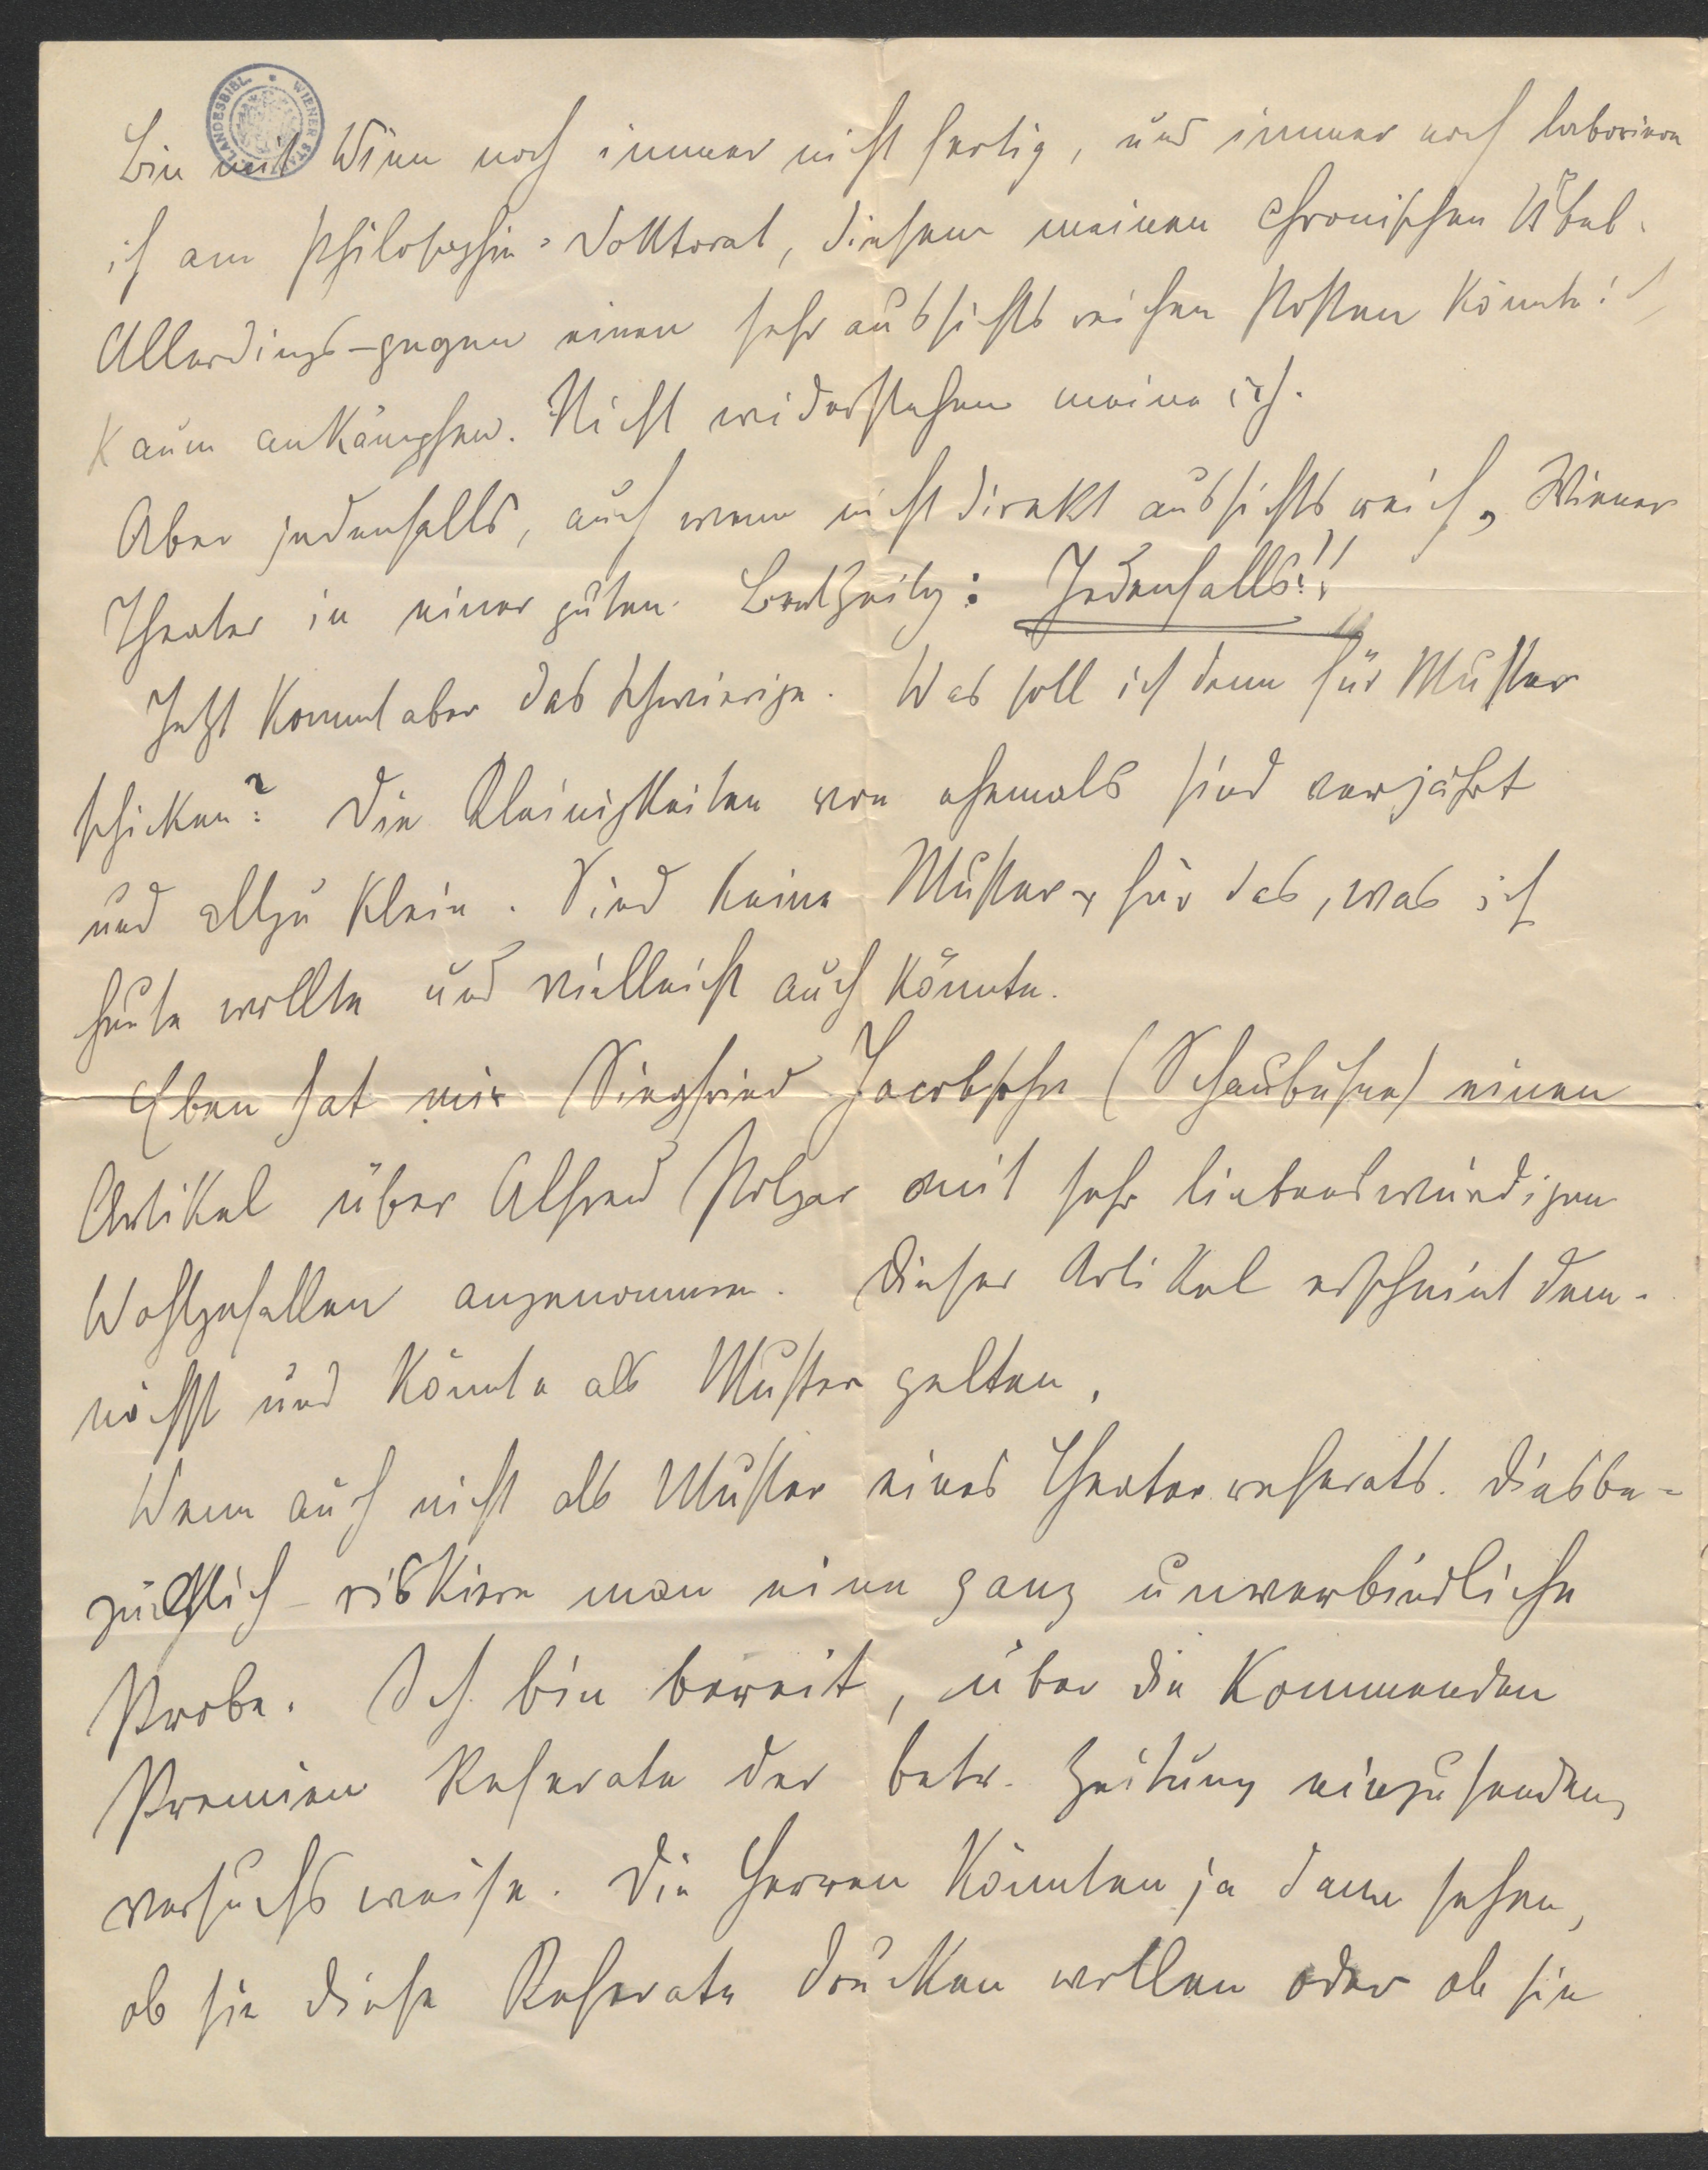 WIENER STADT- LANDESBIBL.
Bin mit Wien noch immer nicht fertig, und immer noch laboriere
ich am Philosophie-Doktorat, diesem meinem chronischen Übel.
Allerdings - gegen einen sehr aussichtsreichen Posten könnte ich
kaum ankämpfen. Nicht widerstehen meine ich.
Aber jedenfalls, auch wenn nicht direkt aussichtsreich, Wiener
Theater in einer guten Zeitg: Jedenfalls!!
Jetzt kommt aber das Schwierige. Was soll ich denn für Muster
schicken? Die Kleinigkeiten von ehemals sind verjährt
und allzu klein. Sind keine Muster für das, was ich
heute wollte und vielleicht auch könnte.
Eben hat mir Siegfried Jacobsohn (Schaubühne) einen
Artikel über Alfred Polgar mit sehr liebenswürdigen
Wohlgefallen angenommen. Dieser Artikel erscheint dem-
nächst und könnte als Muster gelten.
Wenn auch nicht als Muster eines Theaterreferats. Diesbe-
züglich riskiere man eine ganz unverbindliche
Probe. Ich bin bereit, über die kommenden
Premièren Referate der betr. Zeitung einzusenden,
versuchsweise. Die Herren könnten ja dann sehen,
ob sie diese Referate drucken wollen oder ob sie